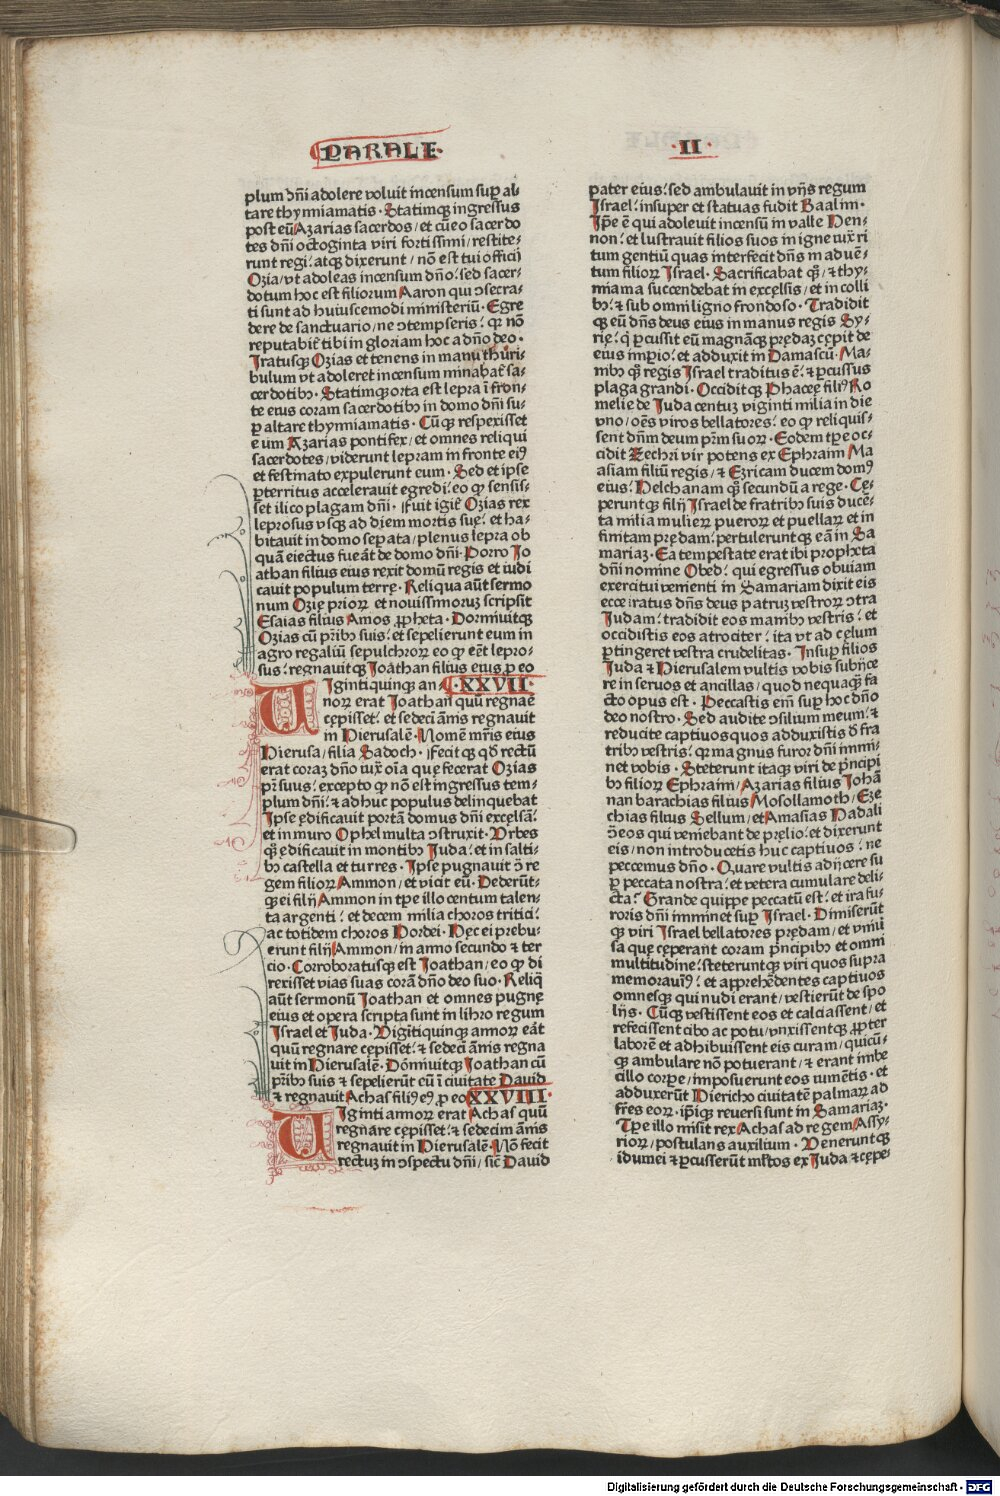 PARALE·
·II·
plum dn̄i adolere voluit incensum sup̱ al-
tare thymiamatis · Statimq̨ ingressus
post eū Azarias sacerdos/ et cū eo sacerdo
tes dn̄i octoginta viri fortissimi/ restite-
runt regi: atq̨ dixerunt/ nō est tui officij
Ozia/ vt adoleas incensum dn̄o: sed sacer-
dotum hoc est filiorum Aaron qui ↄsecra-
ti sunt ad huiuscemodi ministeriū · Egre
dere de sanctuario/ ne ↄtempseris: qꝛ nō
reputabit̄ tibi in gloriam hoc a dn̄o deo ·
Iratusq̨ Ozias et tenens in manu thūri-
bulum vt adoleret incensum minabat̄ sa-
cerdotibꝫ · Statimq̨ orta est lepra ī fron-
te eius coram sacerdotibꝫ in domo dn̄i su-
ꝑ altare thymiamatis · Cūq̨ respexisset
eum Azarias pontifex/ et omnes reliqui
sacerdotes/ viderunt lepram in fronte eiꝰ
et festinato expulerunt eum · Sed et ipse
ꝑterritus acceleravit egredi: eo ꝙ sensis-
set ilico plagam dn̄i · Fuit igit̄ Ozias rex
leprosus vsq̨ ad diem mortis suę: et ha-
bitavit in domo seꝑata/ plenus lepra ob
quā eiectus fueāt de domo dn̄i · Porro Jo
athan filius eius rexit domū regis et iudi
cavit populum terrę · Reliqua aūt sermo
num Ozię prioꝝ et novissimoꝝ scripsit
Esaias filius Amos ꝓpheta · Dormiuitq̨
Ozias cū pr̄ibꝫ suis: et sepelierunt eum in
agro regaliū sepulchroꝝ eo ꝙ eēt lepro-
sus: regnauitq̨ Joathan filius eius ꝑ eo
Uiginti quinq̨ an- ·XXVII·
noꝝ erat Joathan quū regnae
cępisset: et sedeci ānis regnauit
in Hierusalē · Nomē mr̄is eius
Hierusa/ filia Sadoch · Fecitq̨ qd̄ rectū
erat coraꝫ dn̄o iuxͭ oīa que fecerat Ozias
pr̄ suus: excepto ꝙ nō est ingressus tem-
plum dn̄i: ⁊ adhuc populus delinquebat
Ipse ędificauit portā domus dn̄i excelsā:
et in muro Ophel multa ↄstruxit · Vrbes
qꝫ ędificauit in montibꝫ Juda: et in salti-
bꝫ castella et turres · Ipse pugnauit ↄ̄ re
gem filioꝝ Ammon/ et vicit eū · Dederūt-
q̨ ei filij Ammon in tp̄e illo centum talen-
ta argenti: et decem milia choros tritici:
ac totidem choros Hordei · Hęc ei prebu-
erunt filij Ammon/ in anno secundo ⁊ ter
cio · Corroboratusq̨ est Joathan/ eo ꝙ di
rexisset vias suas corā dn̄o deo suo · Reliq̄
aūt sermonū Joathan et omnes pugnę
eius et opera scripta sunt in libro regum
Israel et Juda · Viginti quinq̨ annoꝝ eāt
quū regnare cępisset: ⁊ sedeci ānis regna
uit in Hierusalē · Dormiuitq̨ Joathan cū
pr̄ibꝫ suis ⁊ sepelierūt eū ī ciuitate Dauid
⁊ regnauit Achas filiꝰ eiꝰ ꝓ eo XXVIII·
Uiginti annoꝝ erat Achas quū
regnare cępisset: ⁊ sedecim ānis
regnauit in Hierusalē · Nō fecit
rectuꝫ in ↄspectu dn̄i/ sic̄ Dauid
pater eius: sed ambulauit in vijs regum
Israel: insuper et statuas fudit Baalim ·
Ip̄e ē qui adoleuit incensū in valle Hen-
non: et lustrauit filios suos in igne iuxͭ ri
tum gentiū quas interfecit dn̄s in aduē-
tum filioꝝ Israel · Sacrificabat qꝫ/ ⁊ thy-
miama succendebat in excęlsis/ et in colli
bꝫ: ⁊ sub omni ligno frondoso · Tradidit
q̨ eū dn̄s deus eius in manus regis Sy-
rię: q̄ ꝑcussit eū magnāq̨ prędaꝫ cępit de
eius imꝑio: et adduxit in Damascū · Ma-
nibꝫ qꝫ regis Israel traditus ē: ⁊ ꝑcussus
plaga grandi · Occiditq̨ Phaceę filiꝰ Ro
melie de Juda centuꝫ viginti milia in die
vno/ oēs viros bellatores: eo ꝙ reliquis-
sent dn̄m deum pr̄m suoꝝ · Eodem tp̄e oc-
cidit Zechri vir potens ex Ephraim Ma
asiam filiū regis/ ⁊ Ezricam ducem domꝰ
eius: Helchanam qꝫ secundū a rege · Cę-
perunt q̨ filij Israel de fratribꝫ suis ducē-
ta milia mulieꝝ pueroꝝ et puellaꝝ et in
finitam prędam: pertulerunt q̨ eā in Sa
mariaꝫ · Ea tempestate erat ibi propheta
dn̄i nomine Obed: qui egressus obuiam
exercitui venienti in Samariam dixit eis
ecce iratus dn̄s deus patruꝫ vestroꝝ ↄtra
Judam: tradidit eos manibꝫ vestris: et
occidistis eos atrociter: ita vt ad cęlum
ꝑtingeret vestra crudelitas · Insuꝑ filios
Juda ⁊ Hierusalem vultis vobis subijce
re in seruos et ancillas/ quod nequaq̄ fa
cto opus est · Peccastis enī suꝑ hoc dn̄o
deo nostro · Sed audite ↄsilium meum: ⁊
reducite captiuos quos adduxistis d̄ fra
tribꝫ vestris: qꝛ magnus furor dn̄i immi-
net vobis · Steterunt itaq̨ viri de p̄ncipi
bꝫ filioꝝ Ephraim/ Azarias filius Johā
nan barachias filius Mosollamoth/ Eze
chias filius Sellum/ et Amasias Hadali
ↄ̄ eos qui veniebant de pręlio: et dixerunt
eis/ non introducetis huc captiuos: ne
peccemus dn̄o · Quare vultis adijcere su
ꝑ peccata nostra: et vetera cumulare deli-
cta: Grande quippe peccatū est: et ira fu-
roris dn̄i imminet suꝑ Israel · Dimiserūt
q̨ viri Israel bellatores prędam/ et vniū
sa quę cęperant coram p̄ncipibꝫ et omni
multitudine: steteruntq̨ viri quos supra
memorauimꝰ: et apprehēdentes captiuos
omnesq̨ qui nudi erant/ vestierūt de spo
lijs · Cūq̨ vestissent eos et calciassent/ et
refecissent cibo ac potu/ vnxissentq̨ ꝓpter
laborē et adhibuissent eis curam/ quicū-
q̨ ambulare nō potuerant/ ⁊ erant imbe
cillo corꝑe/ imposuerunt eos iumētis · et
adduxerūt Hiericho ciuitatē palmaꝝ ad
fr̄es eoꝝ · ip̄iq̨ reuersi sunt in Samariaꝫ ·
Tp̄e illo misit rex Achas ad regem Assy-
rioꝝ/ postulans auxilium · Venerunt q̨
idumei et ꝑcusserūt ml̄tos ex Juda ⁊ cępe-
Digitalisierung gefördert durch die Deutsche Forschungsgemeinschaft - DFG